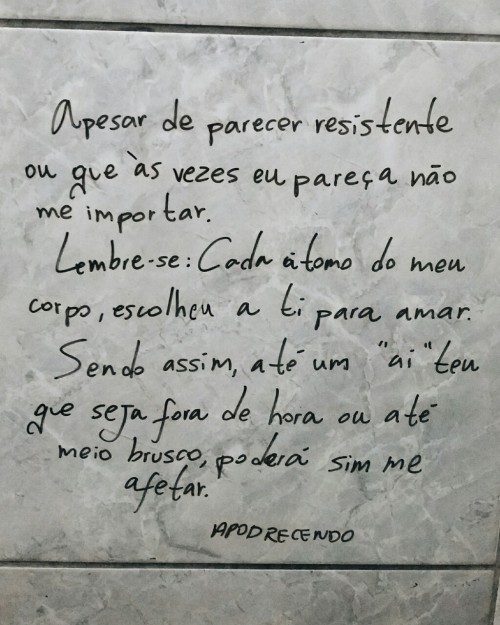 Apesar de parecer resistente
ou que às vezes eu pareça não
me importar.
Lembre-se: Cada átomo do meu
corpo, escolheu a ti para amar.
Sendo assim, até um "ai" teu
que seja fora de hora ou até
meio brusco, poderá sim me
afetar.
APODRECENDO